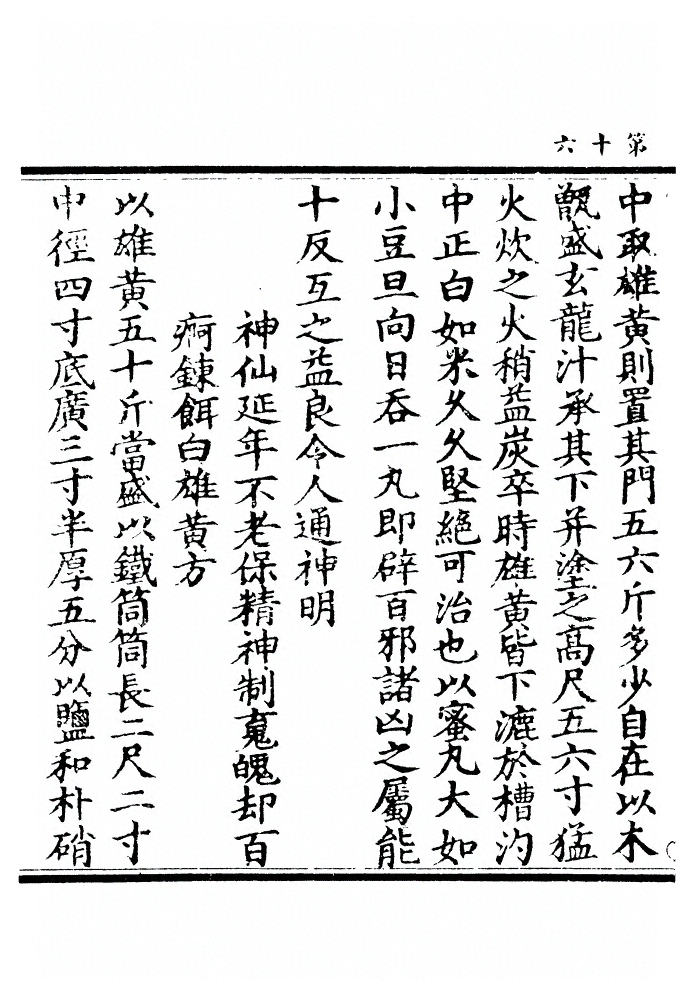 第十六
中取雄黄則置其門五六斤多少自在以木
甑盛玄龍汁承其下并塗之高尺五六寸猛
火炊之火稍益炭卒時雄黄皆下漉於槽汋
中正白如米久久堅絶可治也以蜜丸大如
小豆旦向日吞一丸即辟百邪諸凶之屬能
十反互之益良令人通神明
神仙延年不老保精神制䰟魄却百
痾鍊餌白雄黄方
以雄黄五十斤當盛以鐵筒筒長二尺二寸
中徑四寸底廣三寸半厚五分以鹽和朴硝